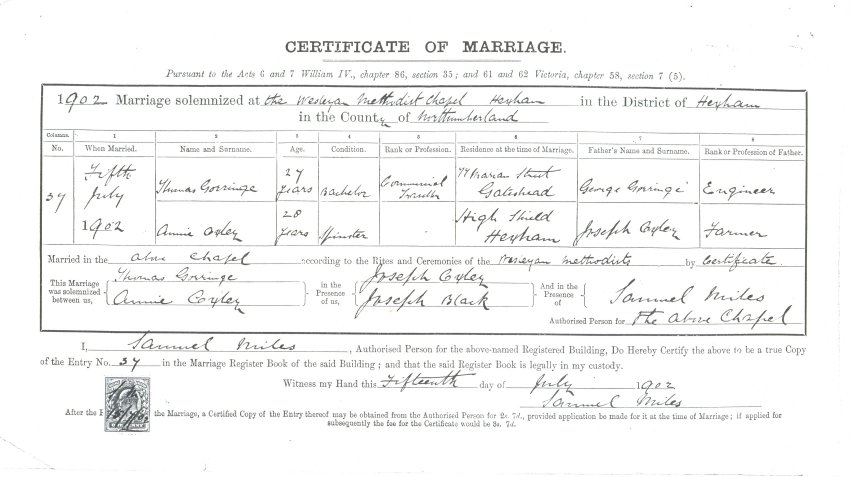 CERTIFICATE OF MARRIAGE.
Pursuant to the Acts 6 and 7 William IV., chapter 86, section 35; and 61 and 62 Victoria, chapter 58, section 7 (5).
1902 Marriage solemnized at the Wesleyan Methodist Chapel Hexham in the District of Hexham
in the County of Northumberland
Columns. 1 2 3 4 5 6 7 8
No. When Married. Name and Surname. Age. Condition. Rank or Profession. Residence at the time of Marriage. Father's Name and Surname. Rank or Profession of Father.
37 Fifth July 1902
Thomas Gorringe 27 years Bachelor Commercial Traveller Street Gateshead George Gorringe Engineer
Annie Oxley 28 years Spinster High Shield Hexham Joseph Oxley Farmer
Married in the above Chapel according to the Rites and Ceremonies of the Wesleyan Methodists by Certificate.
This Marriage was solemnized between us, Thomas Gorringe Annie Oxley in the Presence of us, Joseph Oxley Joseph Black And in the Presence of Samuel Miles
Authorised Person for the above Chapel
I, Samuel Miles, Authorised Person for the above-named Registered Building, Do Hereby Certify the above to be a true Copy
of the Entry No. 37 in the Marriage Register Book of the said Building; and that the said Register Book is legally in my custody.
Witness my Hand this Fifteenth day of July 1902
Samuel Miles
After the the Marriage, a Certified Copy of the Entry thereof may be obtained from the Authorised Person for 2s. 7d., provided application be made for it at the time of Marriage; if applied for
subsequently the fee for the Certificate would be 3s. 7d.